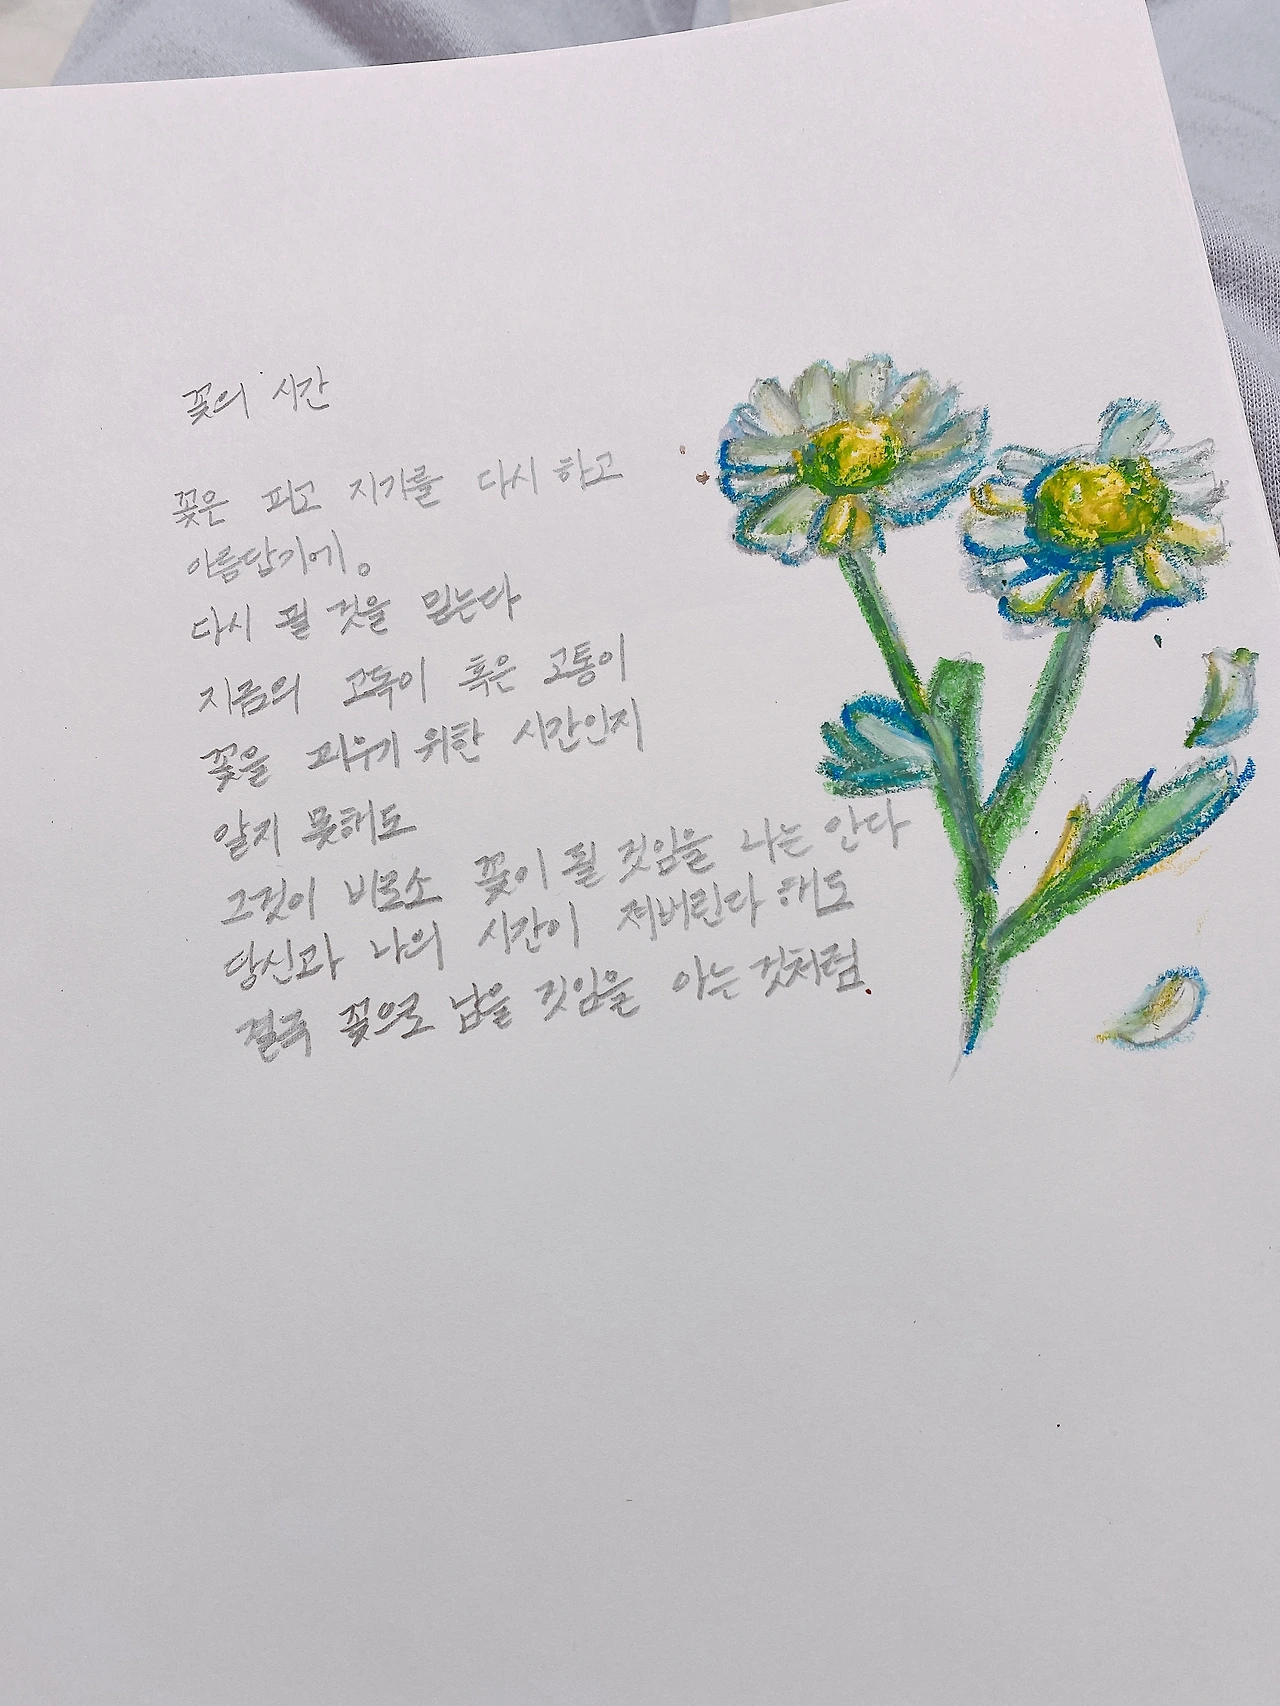 꽃의 시간
꽃은 피고 지기를 다시 하고
아름답기에.
다시 필 것을 믿는다
지금의 고독이 혹은 고통이
꽃을 피우기 위한 시간인지
알지 못해도
그것이 비로소 꽃이 필 것임을 나는 안다
당신과 나의 시간이 져버린다 해도
결국 꽃으로 남을 것임을 아는 것처럼